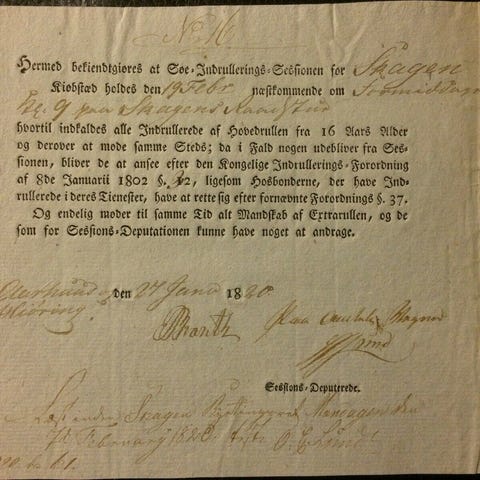 No 16
Hermed bekiendtgiøres at Søe-Indrullerings-Sessionen for Skagen
Kiøbstæd holdes den 19 Febr. næstkommende om Formiddagen
Kl. 9 paa Skagens Raadstue
hvortil indkaldes alle Indrullerede af Hovedrullen fra 16 Aars Alder
og derover at møde samme Steds; da i Fald nogen udebliver fra Ses-
sionen, bliver de at ansee efter den Kongelige Indrullerings-Forordning
af 8de Januarii 1802 §. 42, ligesom Hosbonderne, der have Ind-
rullerede i deres Tienester, have at rette sig efter fornævnte Forordnings §. 37.
Og endelig møder til samme Tid alt Mandskab af Extrarullen, og de
som for Sessions-Deputationen kunne have noget at andrage.
Aarhuus og den 27 Janu 1820.
Hiøring
Wagner
Sessions-Deputerede.
Læst inden Skagen
7de February 1820 O. C. Lund